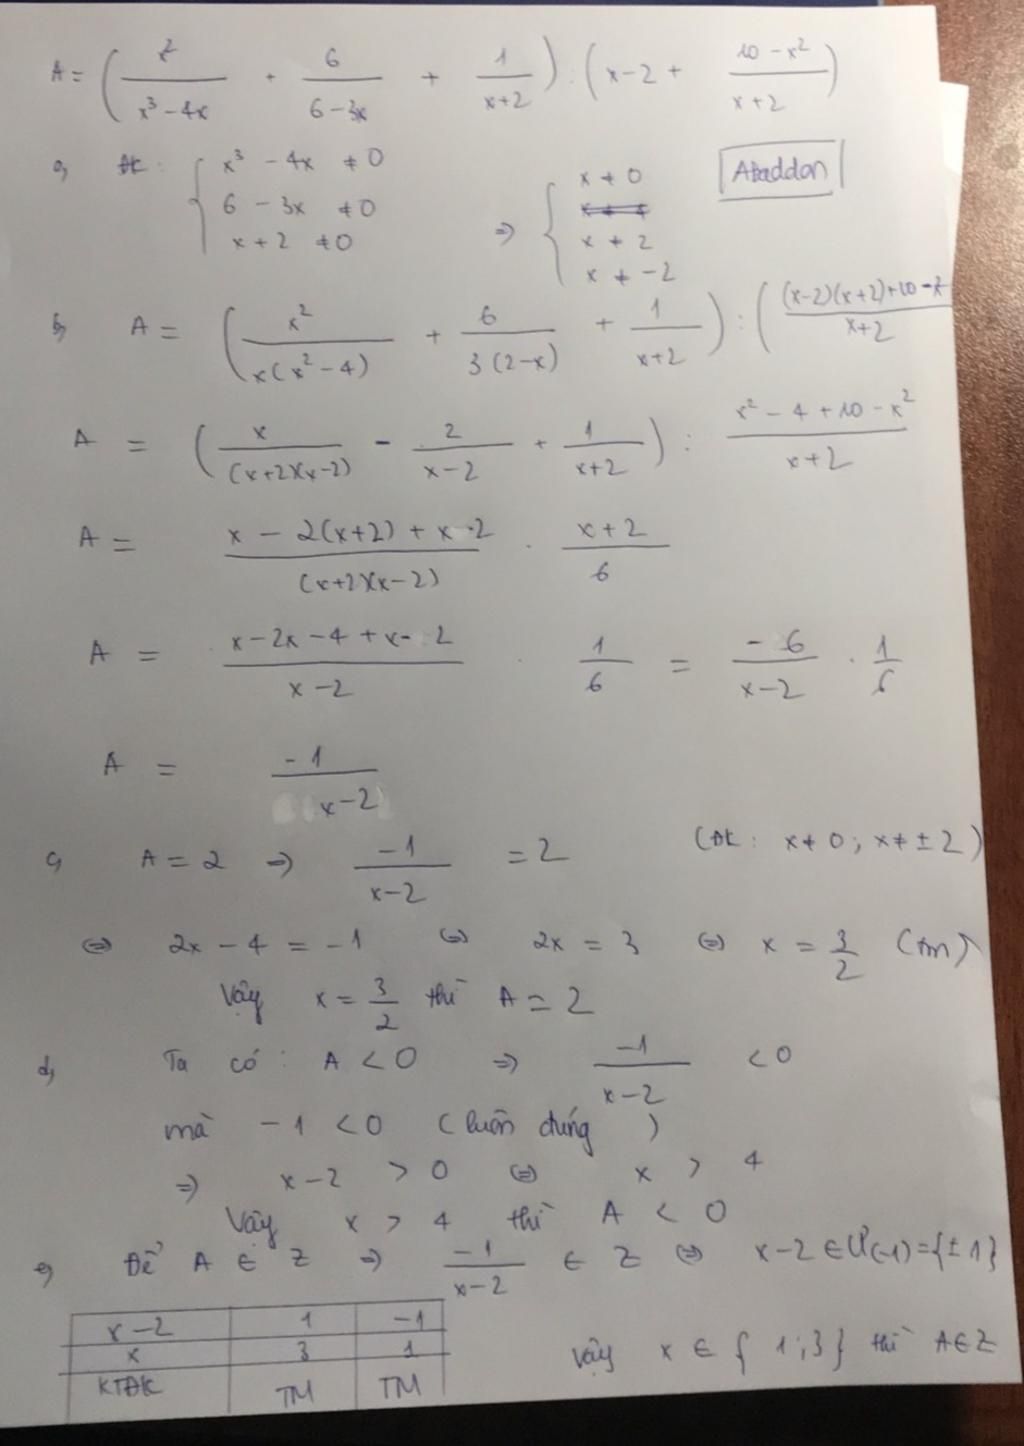 A = ( x² / (x³ - 4x) + 6 / (6 - 3x) + 1 / (x+2) ) : ( x - 2 + (10 - x²) / (x+2) )
a, ĐK : { x³ - 4x ≠ 0 ; 6 - 3x ≠ 0 ; x + 2 ≠ 0 => { x ≠ 0 ; x ≠ 2 ; x ≠ -2
Abaddon
b, A = ( x² / x(x² - 4) + 6 / 3(2-x) + 1 / (x+2) ) : ( ((x-2)(x+2)+10-x²) / (x+2)
A = ( x / (x+2)(x-2) - 2 / (x-2) + 1 / (x+2) ) : (x² - 4 + 10 - x²) / (x+2)
A = (x - 2(x+2) + x - 2) / (x+2)(x-2) . (x+2) / 6
A = (x - 2x - 4 + x - 2) / (x-2) . 1/6 = -6 / (x-2) . 1/6
A = -1 / (x-2)
c, A = 2 => -1 / (x-2) = 2 (ĐK : x ≠ 0 ; x ≠ ±2)
<=> 2x - 4 = -1 <=> 2x = 3 <=> x = 3/2 (tm)
Vậy x = 3/2 thì A = 2
d, Ta có : A < 0 => -1 / (x-2) < 0
mà -1 < 0 (luôn đúng)
=> x - 2 > 0 <=> x > 4
Vậy x > 4 thì A < 0
e, Để A ∈ Z => -1 / (x-2) ∈ Z <=> x - 2 ∈ Ư(-1) = {±1}
x-2 1 -1
x 3 1
KTĐK TM TM
Vậy x ∈ { 1 ; 3 } thì A ∈ Z